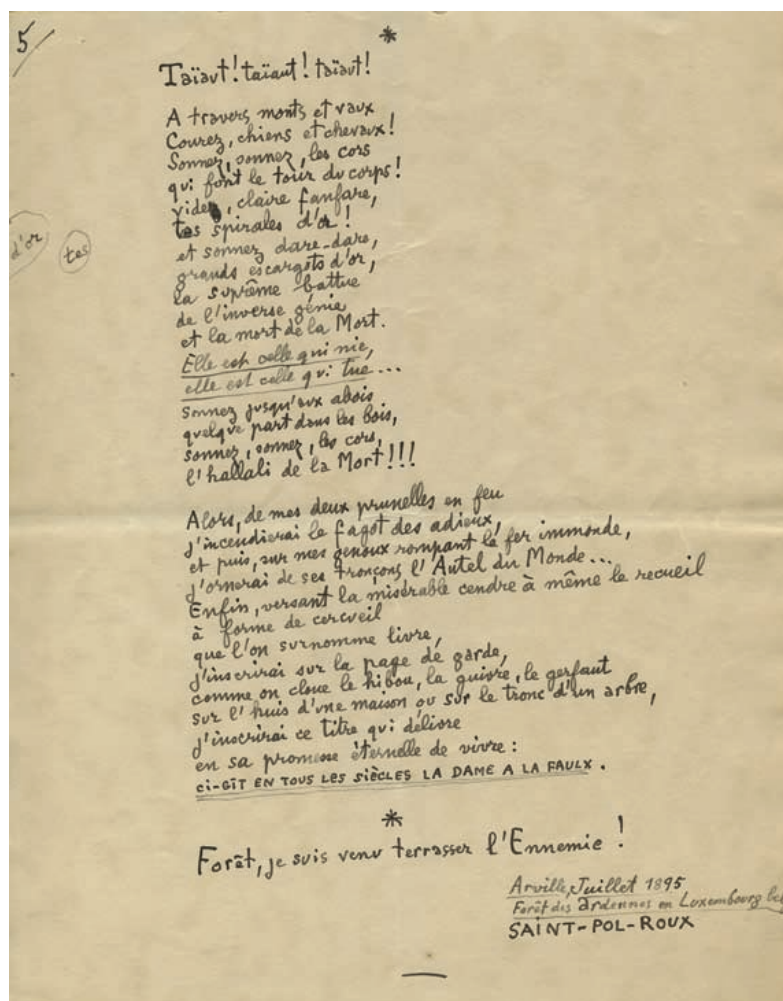 5/
*
Taïaut! taïaut! taïaut!
A travers monts et vaux
Courez, chiens et chevaux!
Sonnez, sonnez, les cors
qui font le tour du corps!
videz, claire fanfare,
tes spirales d'or!
d'or, tes
et sonnez dare-dare,
grands escargots d'or,
la suprême battue
de l'inverse génie
et la mort de la Mort.
Elle est celle qui nie,
elle est celle qui tue...
sonnez jusqu'aux abois
quelque part dans les bois,
sonnez, sonnez, les cors,
l'hallali de la Mort!!!
Alors, de mes deux prunelles en feu
j'incendierai le fagot des adieux,
et puis, sur mes genoux rompant le fer immonde,
j'ornerai de ses tronçons l'Autel du Monde...
Enfin, versant la misérable cendre à même le recueil
à forme de cercueil
que l'on surnomme livre,
j'inscrirai sur la page de garde,
comme on cloue le hibou, la guivre, le gerfaut
sur l'huis d'une maison ou sur le tronc d'un arbre,
j'inscrirai ce titre qui délivre
en sa promesse éternelle de vivre:
ci-GÎT EN TOUS LES SIÈCLES LA DAME A LA FAULX.
*
Forêt, je suis venu terrasser l'Ennemie!
Arville, Juillet 1895
Forêt des ardennes en Luxembourg
SAINT-POL-ROUX